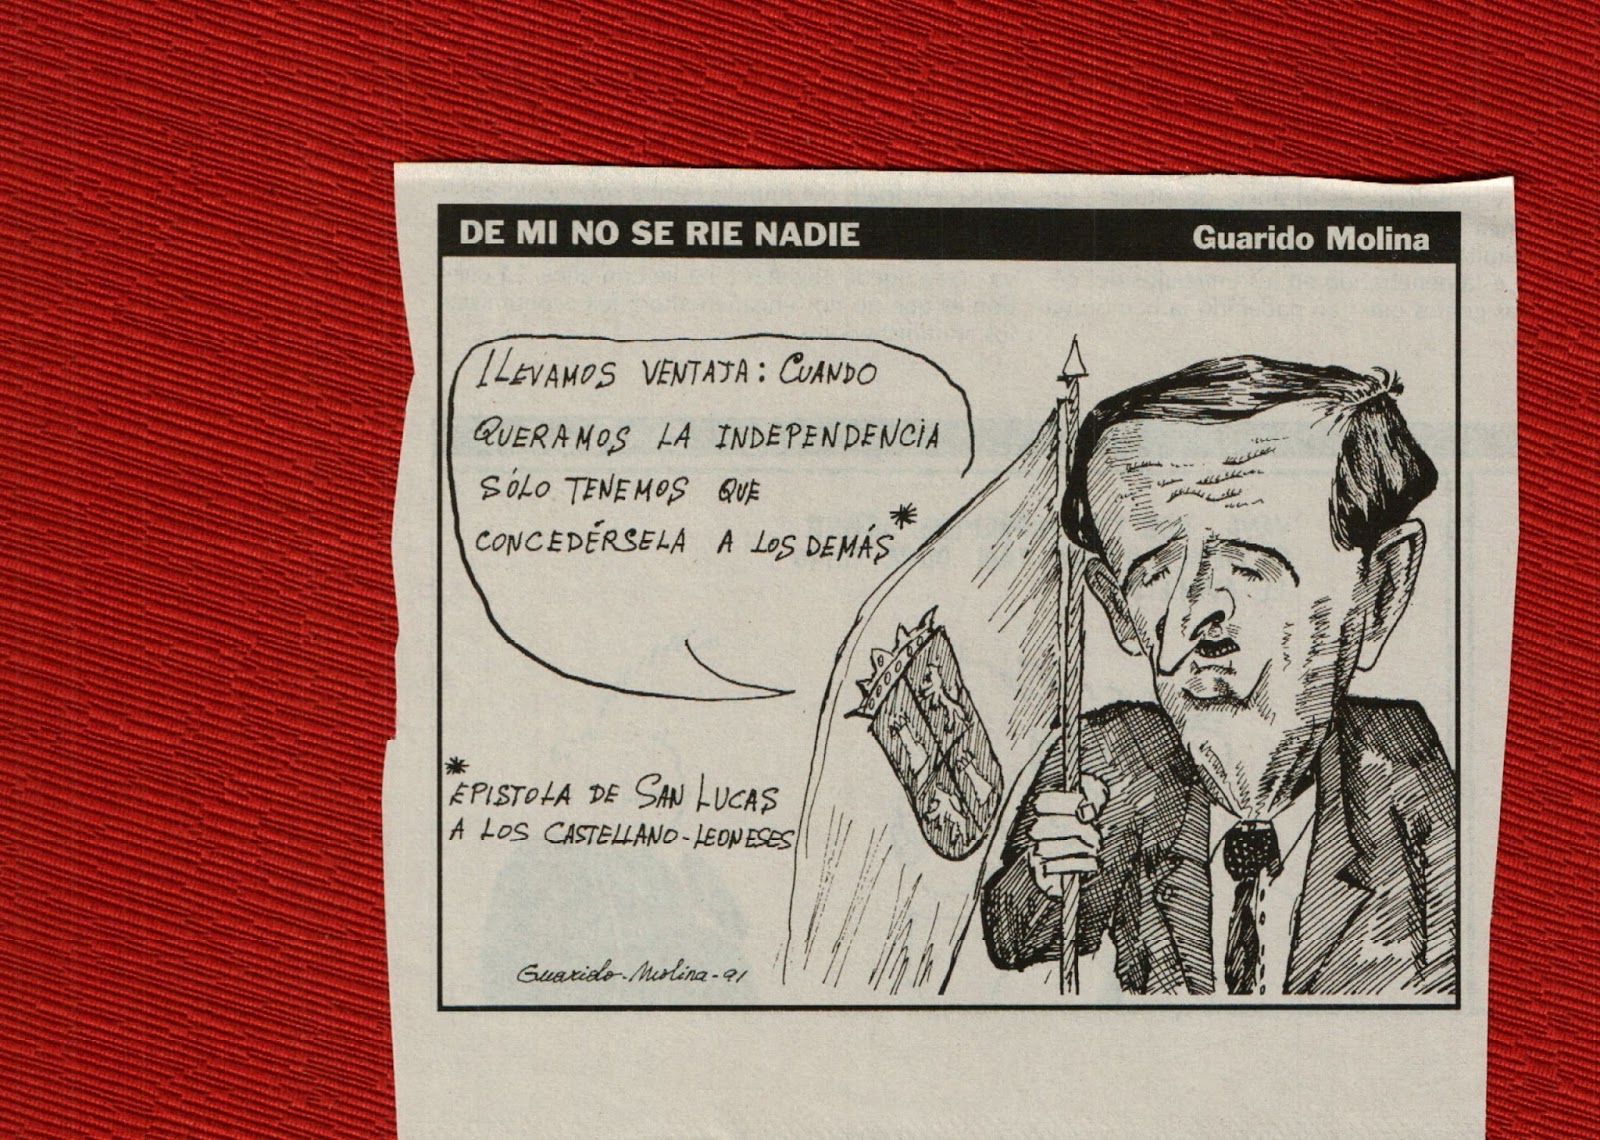 DE MI NO SE RIE NADIE
Guarido Molina
LLEVAMOS VENTAJA: CUANDO
QUERAMOS LA INDEPENDENCIA
SÓLO TENEMOS QUE
CONCEDÉRSELA A LOS DEMÁS*
*
EPISTOLA DE SAN LUCAS
A LOS CASTELLANO-LEONESES
Guarido-Molina-91